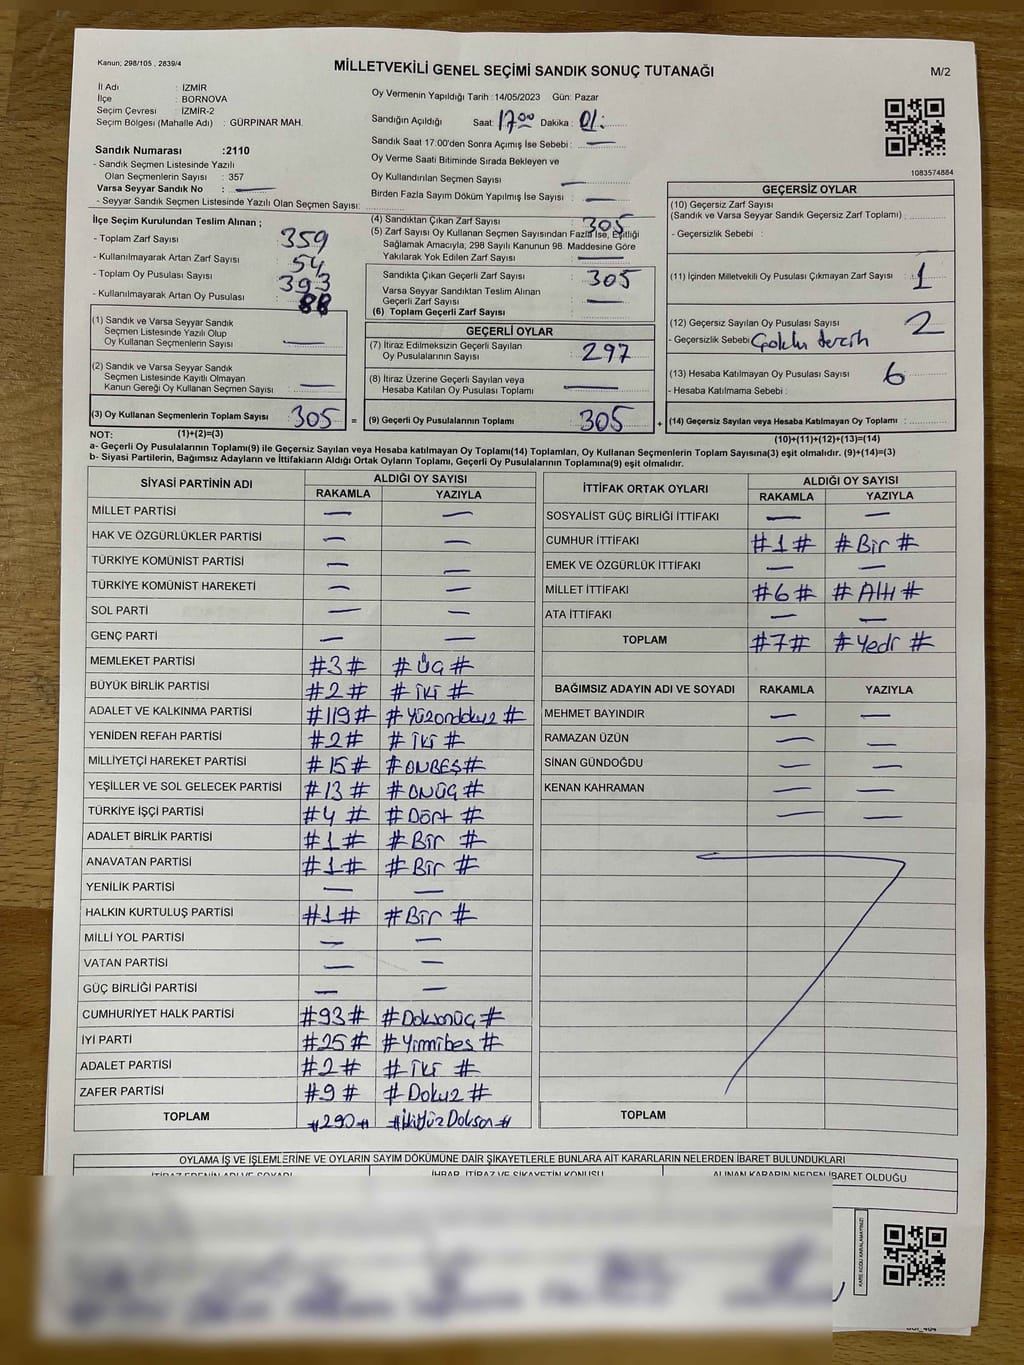 Kanun, 298/105 , 2839/4
MİLLETVEKİLİ GENEL SEÇİMİ SANDIK SONUÇ TUTANAĞI
M/2
İl Adı : İZMİR
İlçe : BORNOVA
Seçim Çevresi : İZMİR-2
Seçim Bölgesi (Mahalle Adı) : GÜRPINAR MAH.
Sandık Numarası :2110
- Sandık Seçmen Listesinde Yazılı
Olan Seçmenlerin Sayısı : 357
Varsa Seyyar Sandık No : —
- Seyyar Sandık Seçmen Listesinde Yazılı Olan Seçmen Sayısı:
Oy Vermenin Yapıldığı Tarih :14/05/2023 Gün: Pazar
Sandığın Açıldığı Saat: 17:00 Dakika : 01:
Sandık Saat 17.00'den Sonra Açımış İse Sebebi : —
Oy Verme Saati Bitiminde Sırada Bekleyen ve
Oy Kullandırılan Seçmen Sayısı —
Birden Fazla Sayım Döküm Yapılmış İse Sayısı : —
1083574884
İlçe Seçim Kurulundan Teslim Alınan ;
- Toplam Zarf Sayısı 359
- Kullanılmayarak Artan Zarf Sayısı 54
- Toplam Oy Pusulası Sayısı 393
- Kullanılmayarak Artan Oy Pusulası 88
(1) Sandık ve Varsa Seyyar Sandık
Seçmen Listesinde Yazılı Olup
Oy Kullanan Seçmenlerin Sayısı —
(2) Sandık ve Varsa Seyyar Sandık
Seçmen Listesinde Kayıtlı Olmayan
Kanun Gereği Oy Kullanan Seçmen Sayısı —
(3) Oy Kullanan Seçmenlerin Toplam Sayısı 305 =
(1)+(2)=(3)
(4) Sandıktan Çıkan Zarf Sayısı 305
(5) Zarf Sayısı Oy Kullanan Seçmen Sayısından Fazla İse, Eşitliği
Sağlamak Amacıyla, 298 Sayılı Kanunun 98. Maddesine Göre
Yakılarak Yok Edilen Zarf Sayısı : —
Sandıkta Çıkan Geçerli Zarf Sayısı : 305
Varsa Seyyar Sandıktan Teslim Alınan
Geçerli Zarf Sayısı : —
(6) Toplam Geçerli Zarf Sayısı :
GEÇERLİ OYLAR
(7) İtiraz Edilmeksizin Geçerli Sayılan
Oy Pusulalarının Sayısı : 297
(8) İtiraz Üzerine Geçerli Sayılan veya
Hesaba Katılan Oy Pusulası Toplamı : —
(9) Geçerli Oy Pusulalarının Toplamı : 305 +
GEÇERSİZ OYLAR
(10) Geçersiz Zarf Sayısı
(Sandık ve Varsa Seyyar Sandık Geçersiz Zarf Toplamı) :
- Geçersizlik Sebebi :
(11) İçinden Milletvekili Oy Pusulası Çıkmayan Zarf Sayısı : 1
(12) Geçersiz Sayılan Oy Pusulası Sayısı : 2
- Geçersizlik Sebebi Çoklu tercih
(13) Hesaba Katılmayan Oy Pusulası Sayısı : 6
- Hesaba Katılmama Sebebi :
(14) Geçersiz Sayılan veya Hesaba Katılmayan Oy Toplamı :
(10)+(11)+(12)+(13)=(14)
NOT:
a- Geçerli Oy Pusulalarının Toplamı(9) ile Geçersiz Sayılan veya Hesaba katılmayan Oy Toplamı(14) Toplamları, Oy Kullanan Seçmenlerin Toplam Sayısına(3) eşit olmalıdır. (9)+(14)=(3)
b- Siyasi Partilerin, Bağımsız Adayların ve İttifakların Aldığı Ortak Oyların Toplamı, Geçerli Oy Pusulalarının Toplamına(9) eşit olmalıdır.
SİYASİ PARTİNİN ADI ALDIĞI OY SAYISI
RAKAMLA YAZIYLA
MİLLET PARTİSİ — —
HAK VE ÖZGÜRLÜKLER PARTİSİ — —
TÜRKİYE KOMÜNİST PARTİSİ — —
TÜRKİYE KOMÜNİST HAREKETİ — —
SOL PARTİ — —
GENÇ PARTİ — —
MEMLEKET PARTİSİ #3# #ÜÇ#
BÜYÜK BİRLİK PARTİSİ #2# #İKİ#
ADALET VE KALKINMA PARTİSİ #119# #Yüzondokuz#
YENİDEN REFAH PARTİSİ #2# #İKİ#
MİLLİYETÇİ HAREKET PARTİSİ #15# #ONBEŞ#
YEŞİLLER VE SOL GELECEK PARTİSİ #13# #ONÜÇ#
TÜRKİYE İŞÇİ PARTİSİ #4# #Dört#
ADALET BİRLİK PARTİSİ #1# #Bir#
ANAVATAN PARTİSİ #1# #Bir#
YENİLİK PARTİSİ — —
HALKIN KURTULUŞ PARTİSİ #1# #Bir#
MİLLİ YOL PARTİSİ — —
VATAN PARTİSİ — —
GÜÇ BİRLİĞİ PARTİSİ — —
CUMHURİYET HALK PARTİSİ #93# #Doksanüç#
İYİ PARTİ #25# #Yirmibeş#
ADALET PARTİSİ #2# #İKİ#
ZAFER PARTİSİ #9# #Dokuz#
TOPLAM #290# #İkiYüzDoksan#
İTTİFAK ORTAK OYLARI ALDIĞI OY SAYISI
RAKAMLA YAZIYLA
SOSYALİST GÜÇ BİRLİĞİ İTTİFAKI — —
CUMHUR İTTİFAKI #1# #Bir#
EMEK VE ÖZGÜRLÜK İTTİFAKI — —
MİLLET İTTİFAKI #6# #Altı#
ATA İTTİFAKI — —
TOPLAM #7# #Yedi#
BAĞIMSIZ ADAYIN ADI VE SOYADI RAKAMLA YAZIYLA
MEHMET BAYINDIR — —
RAMAZAN ÜZÜN — —
SİNAN GÜNDOĞDU — —
KENAN KAHRAMAN — —
— —
TOPLAM
OYLAMA İŞ VE İŞLEMLERİNE VE OYLARIN SAYIM DÖKÜMÜNE DAİR ŞİKAYETLERLE BUNLARA AİT KARARLARIN NELERDEN İBARET BULUNDUKLARI
İTİRAZ EDENİN ADI VE SOYADI
İHBAR, İTİRAZ VE ŞİKAYETİN KONUSU
ALINAN KARARIN NEDEN İBARET OLDUĞU
KARE KODU KARALAMAYINIZ!